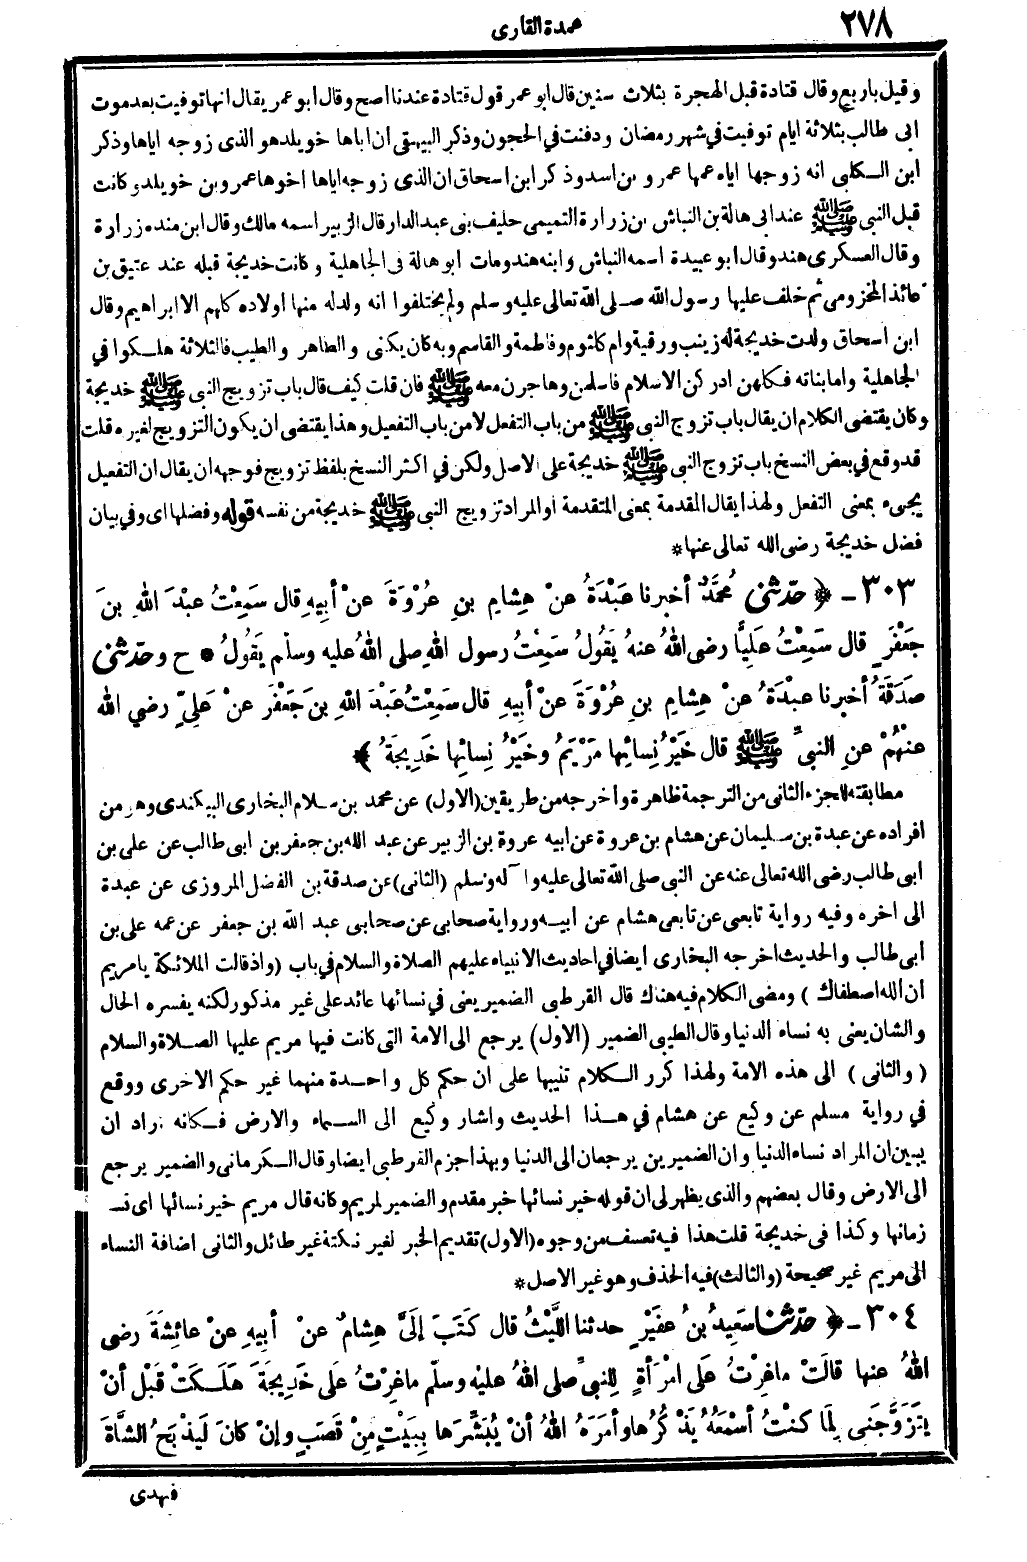 ٢٧٨
عمدة القارى
وقيل باربع وقال قتادة قبل الهجرة بثلاث سنين قال ابو عمر قول قتادة عندنا اصح وقال ابو عمر يقال انها توفيت بعد موت
ابى طالب بثلاثة ايام توفيت في شهر رمضان ودفنت في الحجون وذكر البيهقى ان اباها خويلد هو الذى زوجه اياها وذكر
ابن الـكلبى انه زوجها اياه عمها عمرو بن اسد وذكر ابن اسحاق ان الذى زوجه اياها اخوها عمرو بن خويلد وكانت
قبل النبي ﷺ عند ابى هالة بن النباش بن زرارة التميمى حليف بنى عبد الدار قال الزبير اسمه مالك وقال ابن منده زرارة
وقال العسكرى هند وقال ابو عبيدة اسمه النباش وابنه هند ومات ابو هالة فى الجاهلية وكانت خديجة قبله عند عتيق بن
عائذ المخزومى ثم خلف عليها رسول الله صلى الله تعالى عليه وسلم ولم يختلفوا انه ولد له منها اولاده كلهم الا ابراهيم وقال
ابن اسحاق ولدت خديجة له زينب ورقية وام كلثوم وفاطمة والقاسم وبه كان يكنى والطاهر والطيب فالثلاثة هلـكوا في
الجاهلية واما بناته فـكلهن ادركن الاسلام فاسلمن وهاجرن معه ﷺ فان قلت كيف قال باب تزويج النبى ﷺ خديجة
وكان يقتضى الكلام ان يقال باب تزوج النبى ﷺ من باب التفعل لا من باب التفعيل وهذا يقتضى ان يكون التزويج لغيره قلت
قد وقع في بعض النسخ باب تزوج النبى ﷺ خديجة على الاصل ولكن في اكثر النسخ بلفظ تزويج فوجهه ان يقال ان التفعيل
يجىء بمعنى التفعل ولهذا يقال المقدمة بمعنى المتقدمة او المراد تزويج النبى ﷺ خديجة من نفسه قوله وفضلها اى وفي بيان
فضل خديجة رضى الله تعالى عنها *
٣٠٣ - ﴿ حدّثنى مُحمَّدٌ أخبرنا عَبْدَةُ عنْ هِشامِ بنِ عُرْوَةَ عنْ أبِيهِ قال سَمِعْتُ عبْدَ اللهِ بنَ
جَعْفَرٍ قال سَمِعْتُ عَلِيًّا رضى اللهُ عنهُ يَقُولُ سَمِعْتُ رسول اللهِ صلى اللهُ عليه وسلّم يَقُولُ * ح وحدّثنى
صَدَقَةُ أخبرنا عبْدَةُ عنْ هِشامِ بنِ عُرْوَةَ عنْ أبِيهِ قال سَمِعْتُ عبْدَ اللهِ بنَ جَعْفَرَ عنْ عَلِيٍّ رضي الله
عنْهُمْ عنِ النبىِّ ﷺ قال خَيْرُ نِسائِها مَرْيَمُ وخَيْرُ نِسائِها خَدِيجَةُ ﴾
مطابقته للجزء الثانى من الترجمة ظاهرة واخرجه من طريقين (الاول) عن محمد بن سلام البخارى البيكندى وهو من
افراده عن عبدة بن سليمان عن هشام بن عروة عن ابيه عروة بن الزبير عن عبد الله بن جعفر بن ابى طالب عن على بن
ابى طالب رضى الله تعالى عنه عن النبى صلى الله تعالى عليه وآله وسلم (الثانى) عن صدقة بن الفضل المروزى عن عبدة
الى اخره وفيه رواية تابعى عن تابعى هشام عن ابيـه ورواية صحابى عن صحابى عبد الله بن جعفر عن عمه على بن
ابى طالب والحديث اخرجه البخارى ايضا في احاديث الانبياء عليهم الصلاة والسلام في باب (واذ قالت الملائكة يا مريم
ان الله اصطفاك) ومضى الكلام فيه هناك قال القرطبى الضمير يعنى في نسائها عائد على غير مذكور لكنه يفسره الحال
والشان يعنى به نساء الدنيا وقال الطيبى الضمير (الاول) يرجع الى الامة التى كانت فيها مريم عليها الصـلاة والسلام
(والثانى) الى هذه الامة ولهذا كرر الـكلام تنبيها على ان حكم كل واحـدة منهما غير حكم الاخرى ووقع
في رواية مسلم عن وكيع عن هشام في هـذا الحديث واشار وكيع الى السـماء والارض فـكانه اراد ان
يبين ان المراد نساء الدنيا وان الضميرين يرجعان الى الدنيا وبهذا جزم القرطبى ايضا وقال الـكرمانى والضمير يرجع
الى الارض وقال بعضهم والذى يظهر لى ان قوله خير نسائها خبر مقدم والضمير لمريم وكانه قال مريم خير نسائها اى نسـ
زمانها وكذا فى خديجة قلت هذا فيه تعسف من وجوه (الاول) تقديم الخبر لغير نـكتة غير طائل والثانى اضافة النساء
الى مريم غير صحيحة (والثالث) فيه الحذف وهو غير الاصل *
٣٠٤ - ﴿ حدّثنا سَعِيدُ بنُ عُفَيْرٍ حدثنا اللَّيْثُ قال كَتَبَ إلَىَّ هِشامٌ عنْ أبِيهِ عنْ عائِشَةَ رضى
اللهُ عنها قالَتْ ماغِرْتُ عَلى امْرَأةٍ لِلنبىِّ صلى اللهُ عليْه وسلّم ماغِرْتُ عَلى خَدِيجَةَ هَلَـكَتْ قَبْلَ أنْ
يَتَزَوَّجَنى لِمَا كنْتُ أسْمَعُهُ يَذْكُرُها وأمَرَهُ اللهُ أنْ يُبَشِّرَها بِبَيْتٍ مِنْ قَصَبٍ وإنْ كانَ لَيَذْبَحُ الشَّاةَ
فيهدى